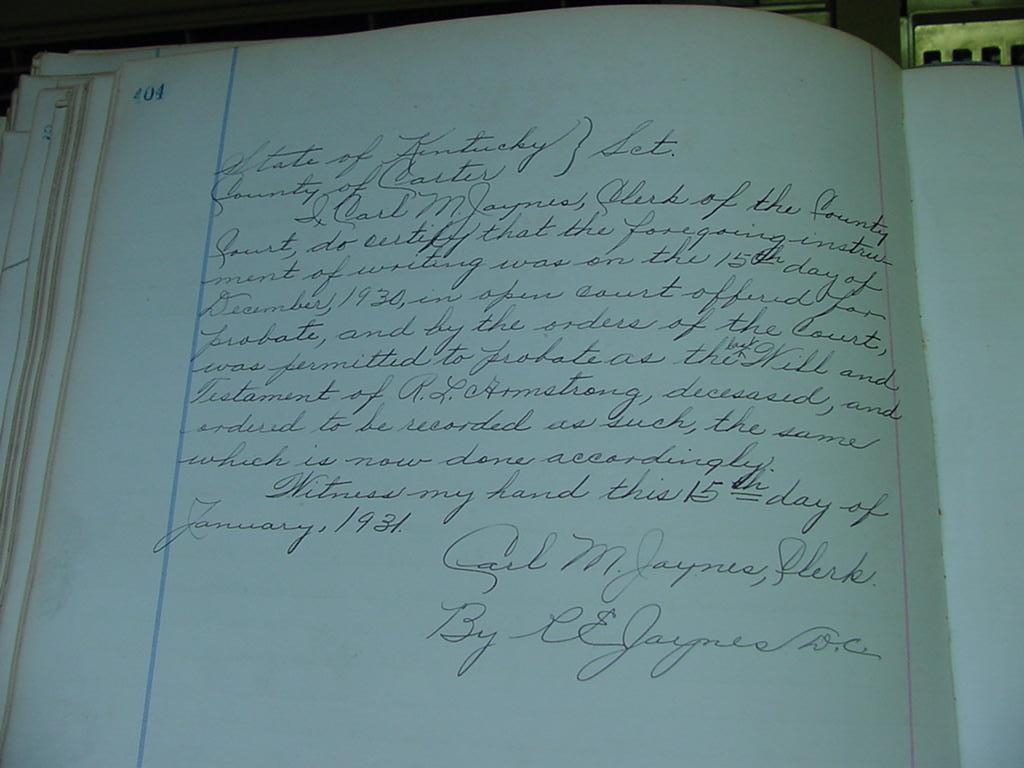 404
State of Kentucky } Sct.
County of Carter
I Carl M. Jaynes, Clerk of the County
Court, do certify that the foregoing instru-
ment of writing was on the 15th day of
December, 1930, in open court offered for
probate, and by the orders of the Court,
was permitted to probate as the last Will and
Testament of R. L. Armstrong, deceased, and
ordered to be recorded as such, the same
which is now done accordingly.
Witness my hand this 15th day of
January, 1931.
Carl M. Jaynes, Clerk.
By C E Jaynes D.C.